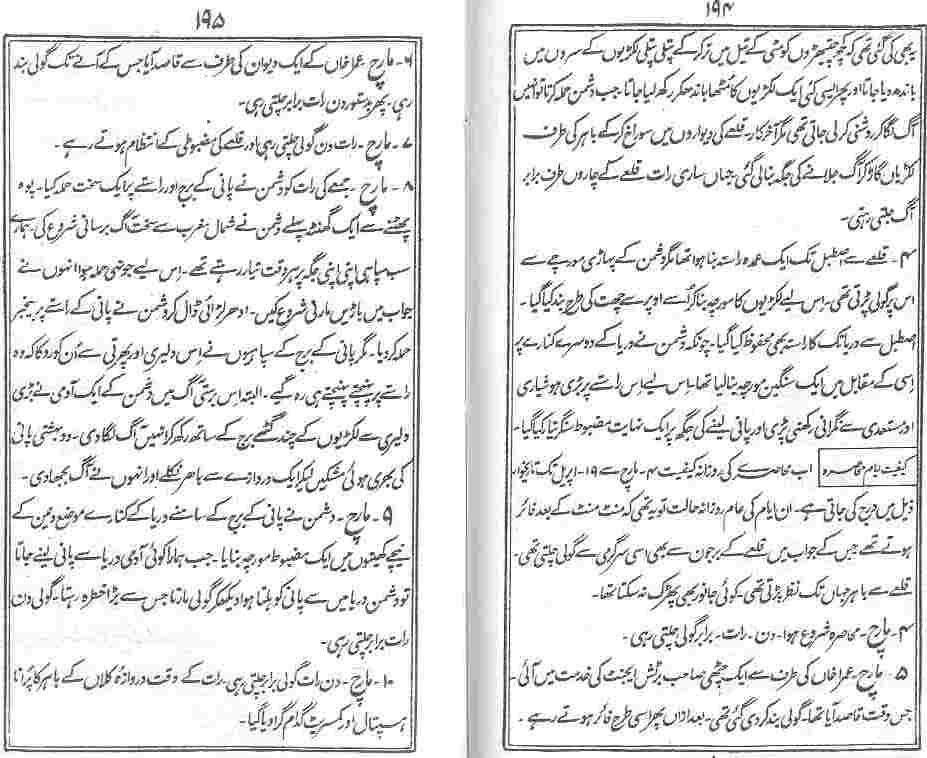 ۱۹۴
یہ بھی کی گئی تھی کہ کچھ چیتھڑوں کو مٹی کے تیل میں تر کر کے پتلی پتلی لکڑیوں کے سروں میں
باندھ دیا جاتا اور پھر ایسی کئی ایک لکڑیوں کا مٹھا باندھکر رکھ لیا جاتا۔ جب دشمن حملہ کرتا تو انہیں
آگ لگا کر روشنی کر لی جاتی تھی مگر آخر کار قلعے کی دیواروں میں سوراخ کر کے باہر کی طرف
لکڑیاں گاڑ کر آگ جلانے کی جگہ بنالی گئی جہاں ساری رات قلعے کے چاروں طرف برابر
آگ جلتی رہتی۔
۴۔ قلعے سے اصطبل تک ایک عمدہ راستہ بنا ہوا تھا مگر دشمن کے پہاڑی مورچے سے
اس پر گولی پڑتی تھی۔ اس لیے لکڑیوں کا مورچہ بنا کر اُسے اوپر سے چھت کی طرح بند کیا گیا۔
اصطبل سے دریا تک کا راستہ بھی محفوظ کیا گیا۔ چونکہ دشمن نے دریا کے دوسرے کنارے پر
اسی کے مقابل میں ایک سنگین مورچہ بنا لیا تھا۔ اس لیے اس راستے پر بڑی ہوشیاری
اور مستعدی سے نگرانی رکھنی پڑی اور پانی لینے کی جگہ پر ایک نہایت مضبوط سنگر بنایا گیا۔
کیفیت ایام محاصرہ اب محاصرے کی روزانہ کیفیت ۴۔ مارچ سے ۱۹۔ اپریل تک تاریخوار
ذیل میں درج کی جاتی ہے۔ ان ایام کی عام روزانہ حالت تو یہ تھی کہ منٹ منٹ کے بعد فائر
ہوتے تھے جس کے جواب میں قلعے کے برجوں سے بھی اسی سرگرمی سے گولی چلتی تھی۔
قلعے سے باہر جہاں تک نظر پڑتی تھی۔ کوئی جانور بھی پھڑک نہ سکتا تھا۔
۴۔ مارچ۔ محاصرہ شروع ہوا۔ دن۔ رات۔ برابر گولی چلتی رہی۔
۵۔ مارچ۔ عمرا خاں کی طرف سے ایک چٹھی صاحب برٹش ایجنٹ کی خدمت میں آئی۔
جس وقت قاصد آیا تھا۔ گولی بند کر دی گئی تھی۔ بعد ازاں پھر اسی طرح فائر ہوتے رہے۔
۱۹۵
۶۔ مارچ عمرا خاں کے ایک دیوان کی طرف سے قاصد آیا جس کے آنے تک گولی بند
رہی۔ پھر بدستور دن رات برابر چلتی رہی۔
۷۔ مارچ۔ رات دن گولی چلتی رہی اور قلعے کی مضبوطی کے انتظام ہوتے رہے۔
۸۔ مارچ۔ جمعے کی رات کو دشمن نے پانی کے برج اور راستے پر ایک سخت حملہ کیا۔ پوہ
پھٹنے سے ایک گھنٹہ پہلے دشمن نے شمال مغرب سے سخت آگ برسانی شروع کی ہمارے
سب سپاہی اپنی اپنی جگہ پر ہر وقت تیار رہتے تھے۔ اس لیے جونہی حملہ ہوا انہوں نے
جواب میں باڑیں مارنی شروع کیں۔ ادھر لڑائی ڈال کر دشمن نے پانی کے راستے پر بیخبر
حملہ کر دیا۔ مگر پانی کے برج کے سپاہیوں نے اس دلیری اور پھرتی سے اُن کو روکا کہ وہ
راستے پر پہنچتے پہنچتے ہی رہ گیے۔ البتہ اس برستی آگ میں دشمن کے ایک آدمی نے بڑی
دلیری سے لکڑیوں کے چند گٹھے برج کے ساتھ رکھ کر انہیں آگ لگا دی۔ دو بہشتی پانی
کی بھری ہوئی مشکیں لیکر ایک دروازے سے باہر نکلے اور انہوں نے آگ بجھا دی۔
۹۔ مارچ۔ دشمن نے پانی کے برج کے سامنے دریا کے کنارے موضع دنین کے
نیچے کھیتوں میں ایک مضبوط مورچہ بنایا۔ جب ہمارا کوئی آدمی دریا سے پانی لینے جاتا
تو دشمن دریا میں سے پانی کو ہلتا ہوا دیکھکر گولی مارتا جس سے بڑا خطرہ رہتا۔ گولی دن
رات برابر چلتی رہی۔
۱۰۔ مارچ۔ دن رات گولی برابر چلتی رہی۔ رات کے وقت دروازہ کلاں کے باہر کا پُرانا
ہسپتال اور کمسریٹ گدام گرا دیا گیا۔